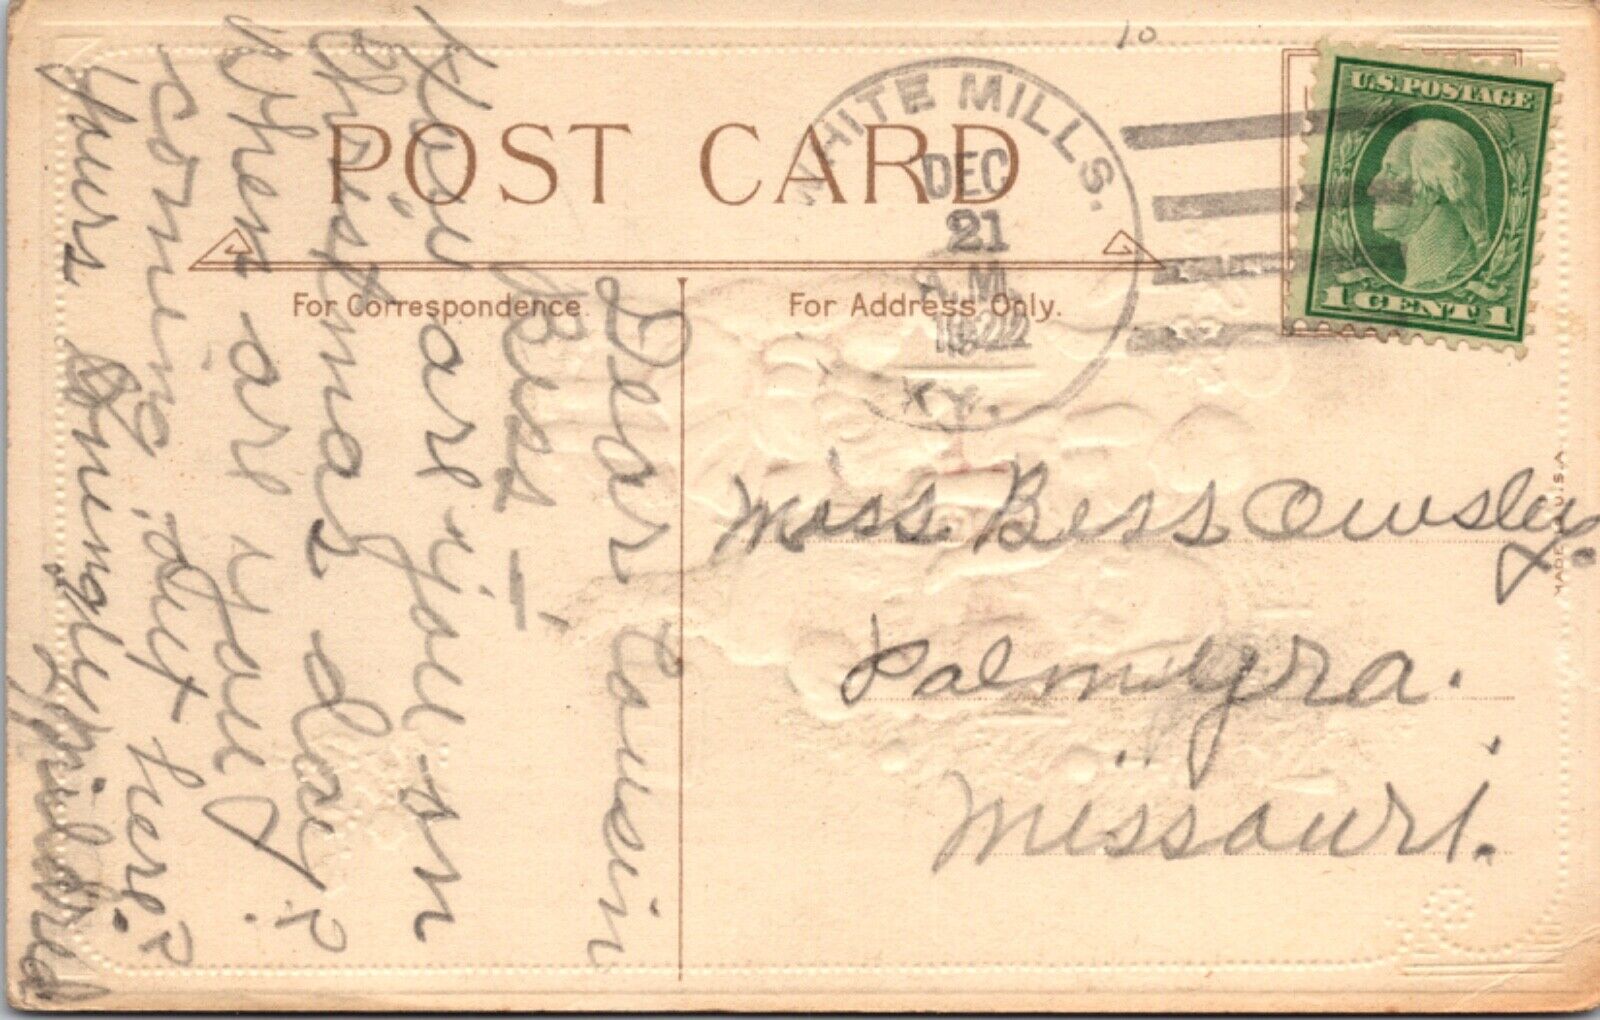 10
POST CARD
For Correspondence.
For Address Only.
WHITE MILLS.
DEC
21
A.M.
1922
KY.
U.S. POSTAGE
1 CENT 1
Miss. Bess Owsley.
Palmyra.
Missouri.
MADE U.S.A
Dear Cousin
Bess —
How are you on
Christmas day?
When are you
coming out here?
Yours